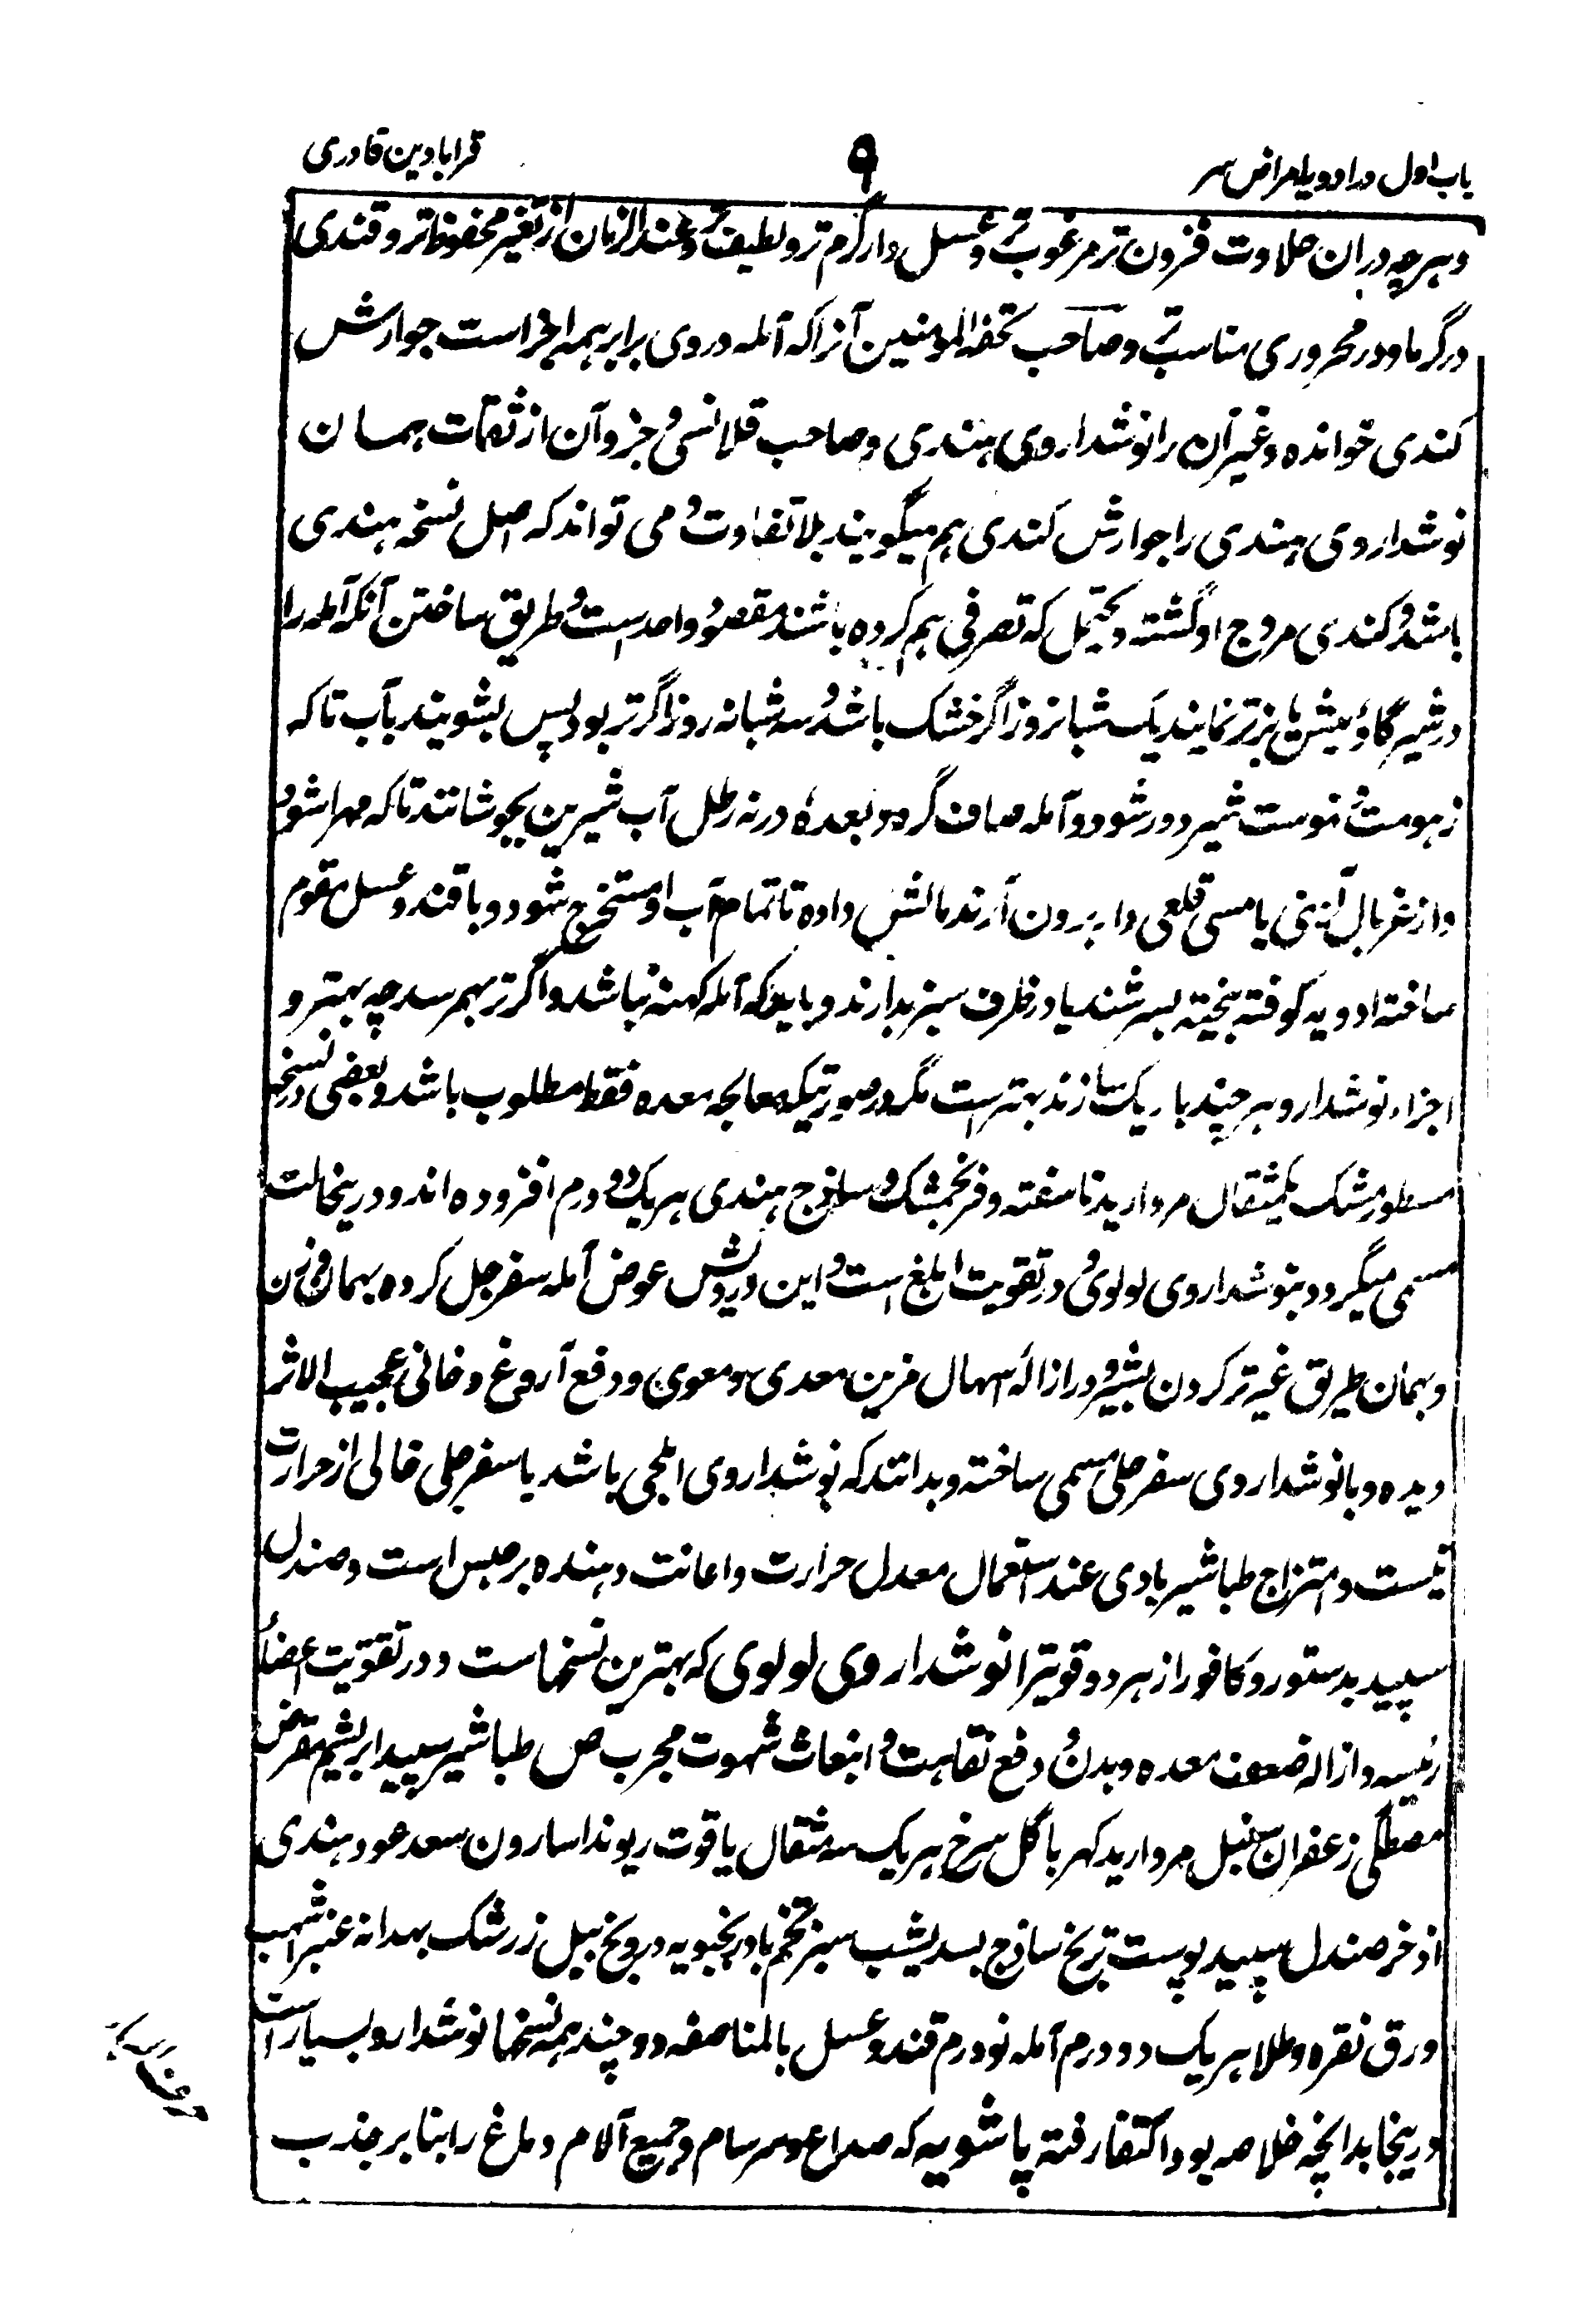 باب اول در ادویه امراض سر
۹
قرابادین قادری
و هرچه دران حلاوت فزون تر مرغوب تر و عسل دار گرم تر و لطیف تر و عند الزمان از تغیر محفوظ تر و قندی
در گرما و در محروری مناسب تر و صاحب تحفة المومنین آنرا که آمله در وی برابر همه اجزاست جوارش
کندی خوانده و غیر آن را نوشداروی هندی و صاحب قلانسی و جز و آن از ثقات همسان
نوشداروی هندی را جوارش کندی هم میگویند بلا تفاوت و می تواند که اصل نسخه هندی
باشد و کندی مروج او گشته و یحتمل که تصرفی هم کرده باشند و مقصود واحد است و طریق ساختن آنکه آمله را
در شیر گاو میش یا بز تر نمایند یک شبانروز اگر خشک باشد و سه شبانه روز اگر تر بود پس بشویند بآب تا که
زهومت و نموست شیر دور شود و آمله صاف گردد بعده در نه رطل آب شیرین بجوشانند تا که مهرا شود
و از غربال آهنی یا مسی قلعی دار برون آرند مالش داده تا تمام آب او مستخرج شود و با قند و عسل مقوم
ساخته ادویه کوفته بیخته بسرشند یا در ظرف سبز بدارند و باید که آمله کهنه نباشد و اگر تر بهم رسد چه بهتر و
اجزاء نوشدارو هر چند باریک سازند بهتر است مگر در صورتیکه معالجه معده فقط مطلوب باشد و بعضی در نسخه
مسطور مشک یکمثقال مروارید ناسفته و فرنجمشک و ساذج هندی هر یک دو درم افزوده اند و درینحالت
مسمی میگردد بنوشداروی لولوی و در تقویت ابلغ است و این درویش عوض آمله سفرجل کرده بهمان وزن
و بهمان طریق غیر تر کردن بشیر و در ازاله اسهال مزمن معدی و معوی و دفع آروغ دخانی عجیب الاثر
دیده و بانوشداروی سفرجلی مسمی ساخته و بدانند که نوشداروی املجی باشد یا سفرجلی خالی از حرارت
نیست و امتزاج طباشیر بادی عند استعمال معدل حرارت و اعانت دهنده بر حبس است و صندل
سپید بدستور و کافور از هر دو قویتر انوشداروی لولوی که بهترین نسخهاست و در تقویت اعضاء
رئیسه و ازاله ضعف معده و بدن و دفع نقاهت و انبعاث شهوت مجرب ص طباشیر سپید ابریشم مقرض
مصطگی زعفران سنبل مروارید کهربا گل سرخ هر یک سه مثقال یاقوت ریوند اسارون سعد عود هندی
اذخر صندل سپید پوست ترنج ساذج بسد یشب سبز تخم بادرنجبویه درونج بیل زرشک بهدانه عنبر اشهب
ورق نقره و طلا هر یک دو درم آمله نو درم قند و عسل بالمناصفه دو چند همه نسخها نوشدارو بسیار است
درینجا بدانچه خلاصه بود اکتفا رفته پاشویه که صداع و سرسام و جمیع آلام دماغ را بنا بر جذب